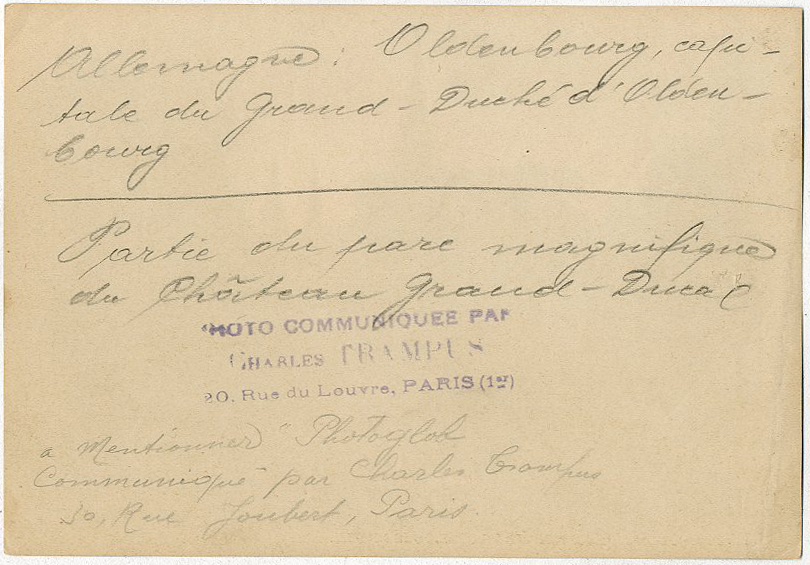 Allemagne : Oldenbourg, capi-
tale du Grand-Duché d'Olden-
bourg
Partie du parc magnifique
du Château Grand-Ducal
PHOTO COMMUNIQUEE PAR
CHARLES TRAMPUS
20, Rue du Louvre, PARIS (1er)
a Mentionner "Photoglob
Communiqué" par Charles Trampus
30, Rue Joubert, Paris.